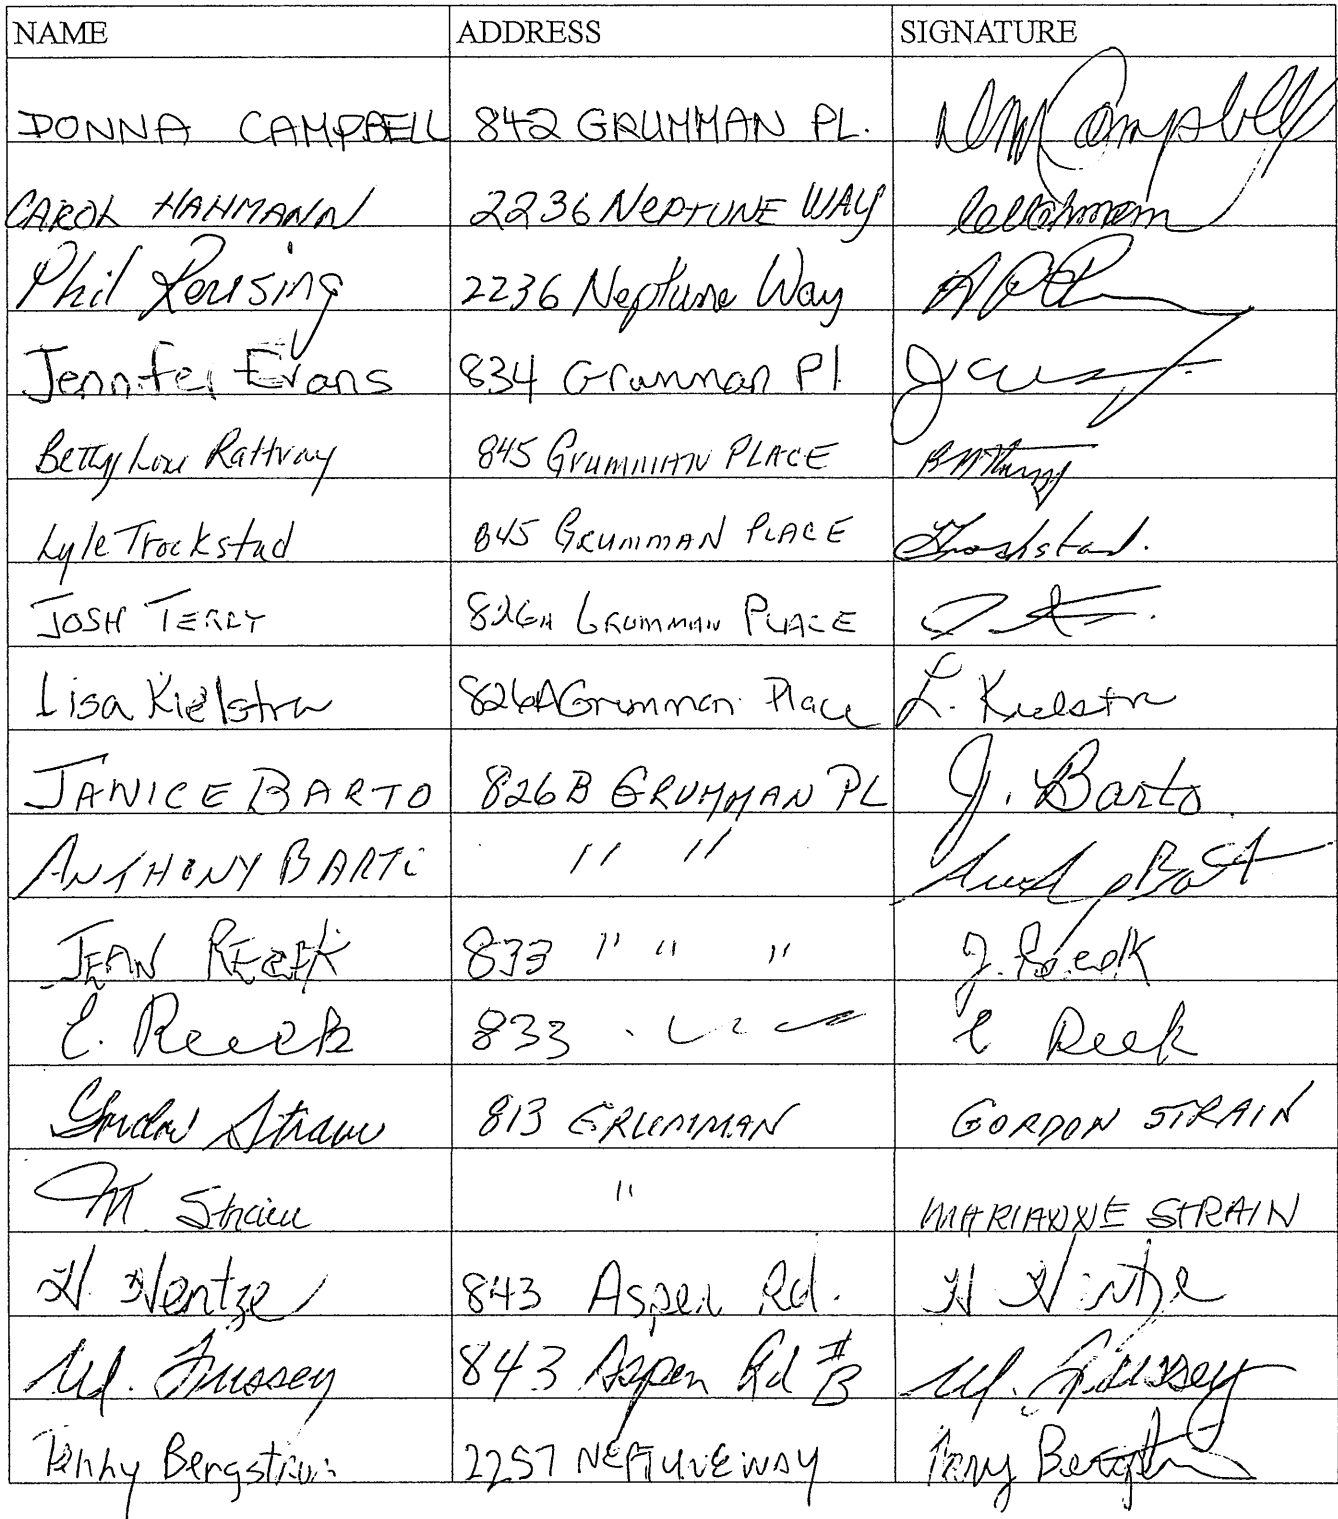 NAME ADDRESS SIGNATURE
DONNA CAMPBELL 842 GRUMMAN PL. DM Campbell
CAROL HAHMANN 2236 NEPTUNE WAY
Phil Rousing 2236 Neptune Way
Jennifer Evans 834 Grumman Pl.
Betty Lou Rattray 845 Grumman PLACE
Lyle Trockstad 845 GRUMMAN PLACE Trockstad.
JOSH TERRY 826A GRUMMAN PLACE
Lisa Kielstra 826A Grumman Place L. Kielstra
JANICE BARTO 826B GRUMMAN PL J. Barto
ANTHONY BARTO " "
JEAN REZEK 833 " " " J. Rezek
E. 833 E
Gordon Strain 813 GRUMMAN GORDON STRAIN
M. Strain " MARIANNE STRAIN
H. 843 Aspen Rd. H
M. Fussey 843 Aspen Rd #B M. Fussey
Penny Bergstrom 2257 NEPTUNE WAY Penny